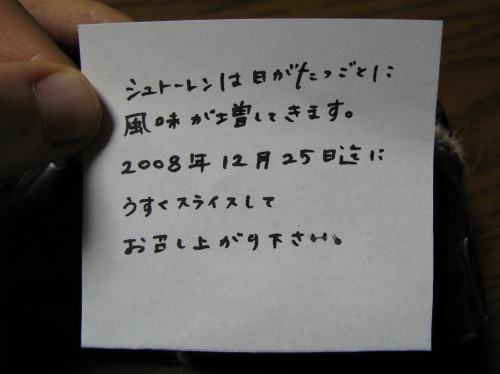 シュトーレンは日がたつごとに
風味が増してきます。
2008年12月25日迄に
うすくスライスして
お召し上がり下さい。